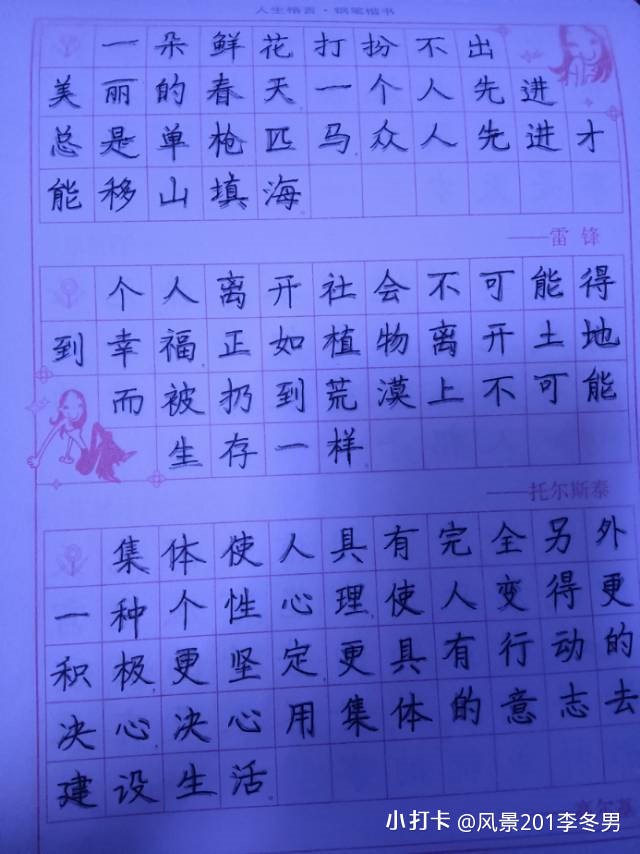 人生格言·钢笔楷书
一朵鲜花打扮不出
美丽的春天一个人先进
总是单枪匹马众人先进才
能移山填海
——雷锋
个人离开社会不可能得
到幸福正如植物离开土地
而被扔到荒漠上不可能
生存一样
——托尔斯泰
集体使人具有完全另外
一种个性心理使人变得更
积极更坚定更具有行动的
决心决心用集体的意志去
建设生活
高尔基
小打卡 @风景201李冬男